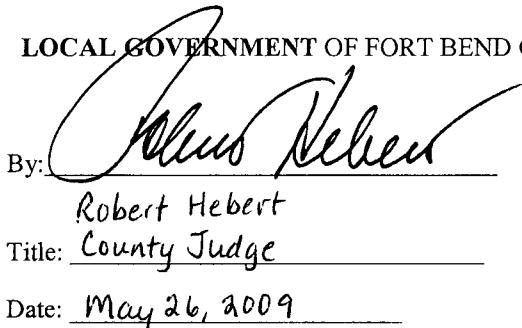 LOCAL GOVERNMENT OF FORT BEND
By:
Robert Hebert
Title: County Judge
Date: May 26, 2009